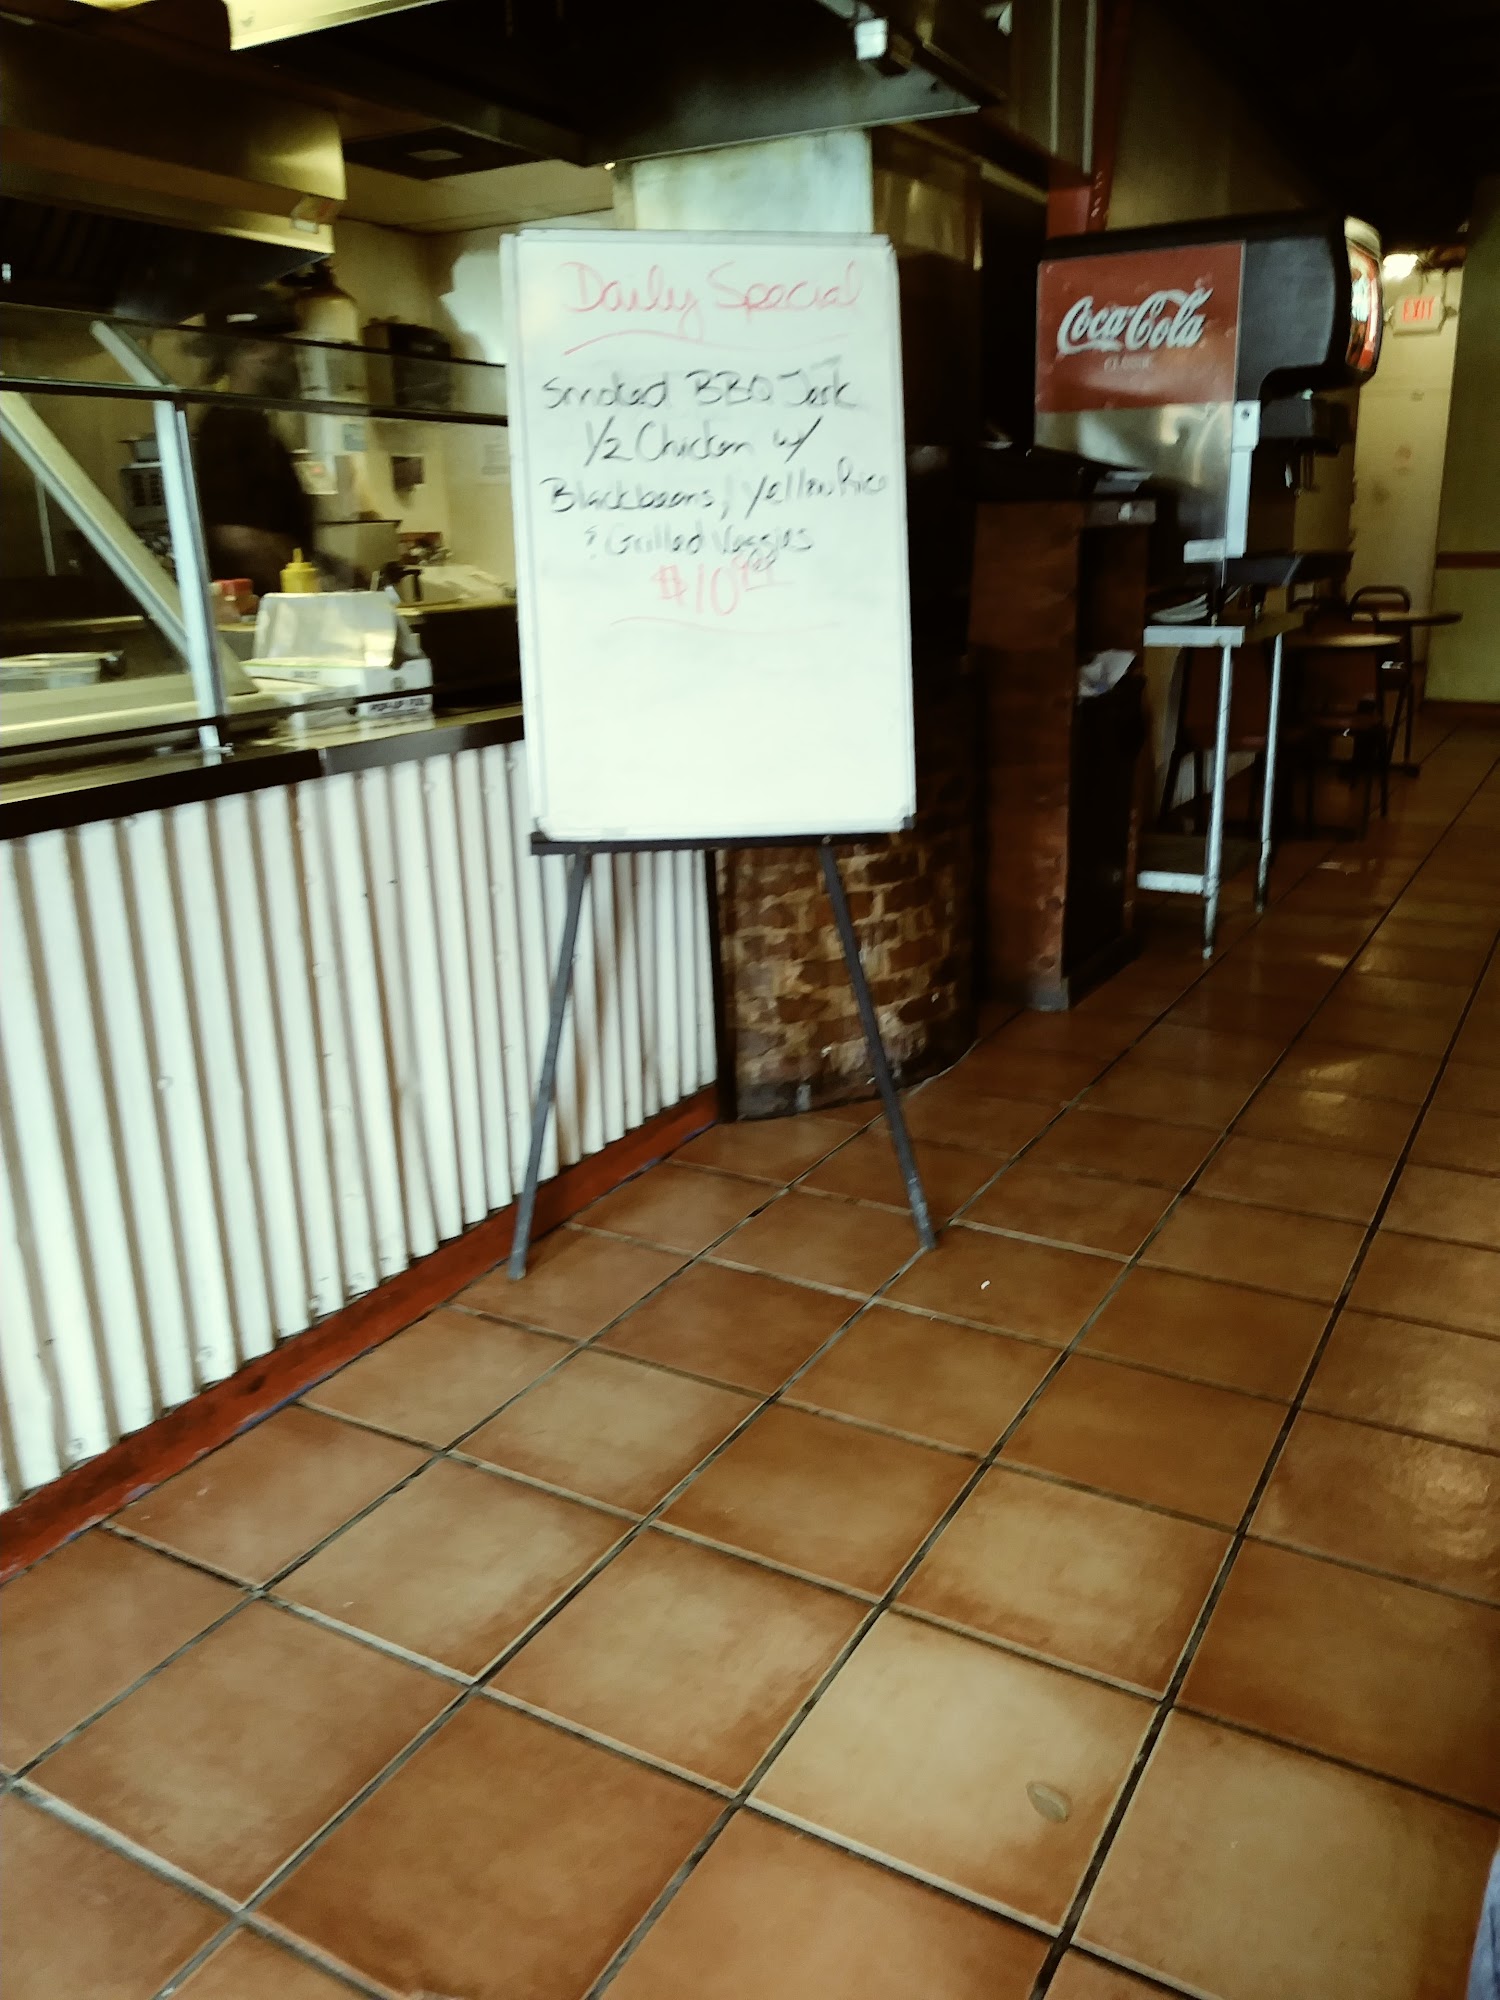 Daily Special
Smoked BBQ Jerk
1/2 Chicken w/
Blackbeans, Yellow Rice
& Grilled Veggies
$10.99
Coca-Cola
CLASSIC
EXIT
POP-UP FOIL